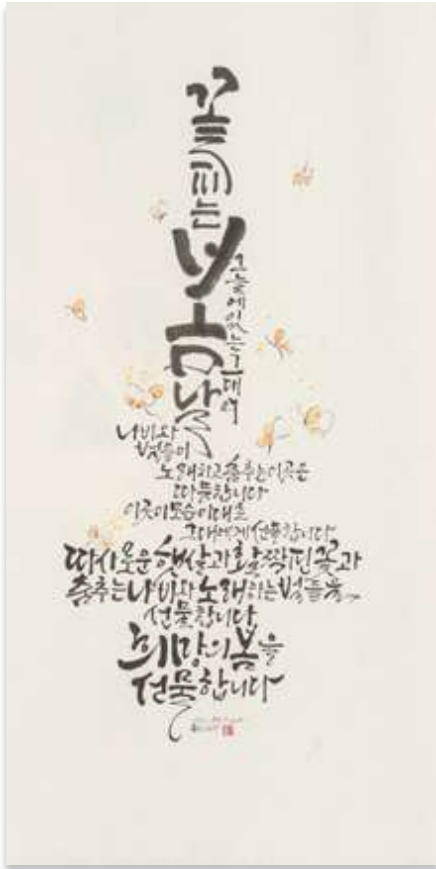 꽃피는
봄날
그늘에 있는 그대여
나비와
벌들이
노래하고 춤추는 이곳은
따뜻합니다
이곳 이 모습 이대로
그대에게 선물합니다
따사로운 햇살과 활짝 핀 꽃과
춤추는 나비와 노래하는 벌들을
선물합니다
희망의 봄을
선물합니다